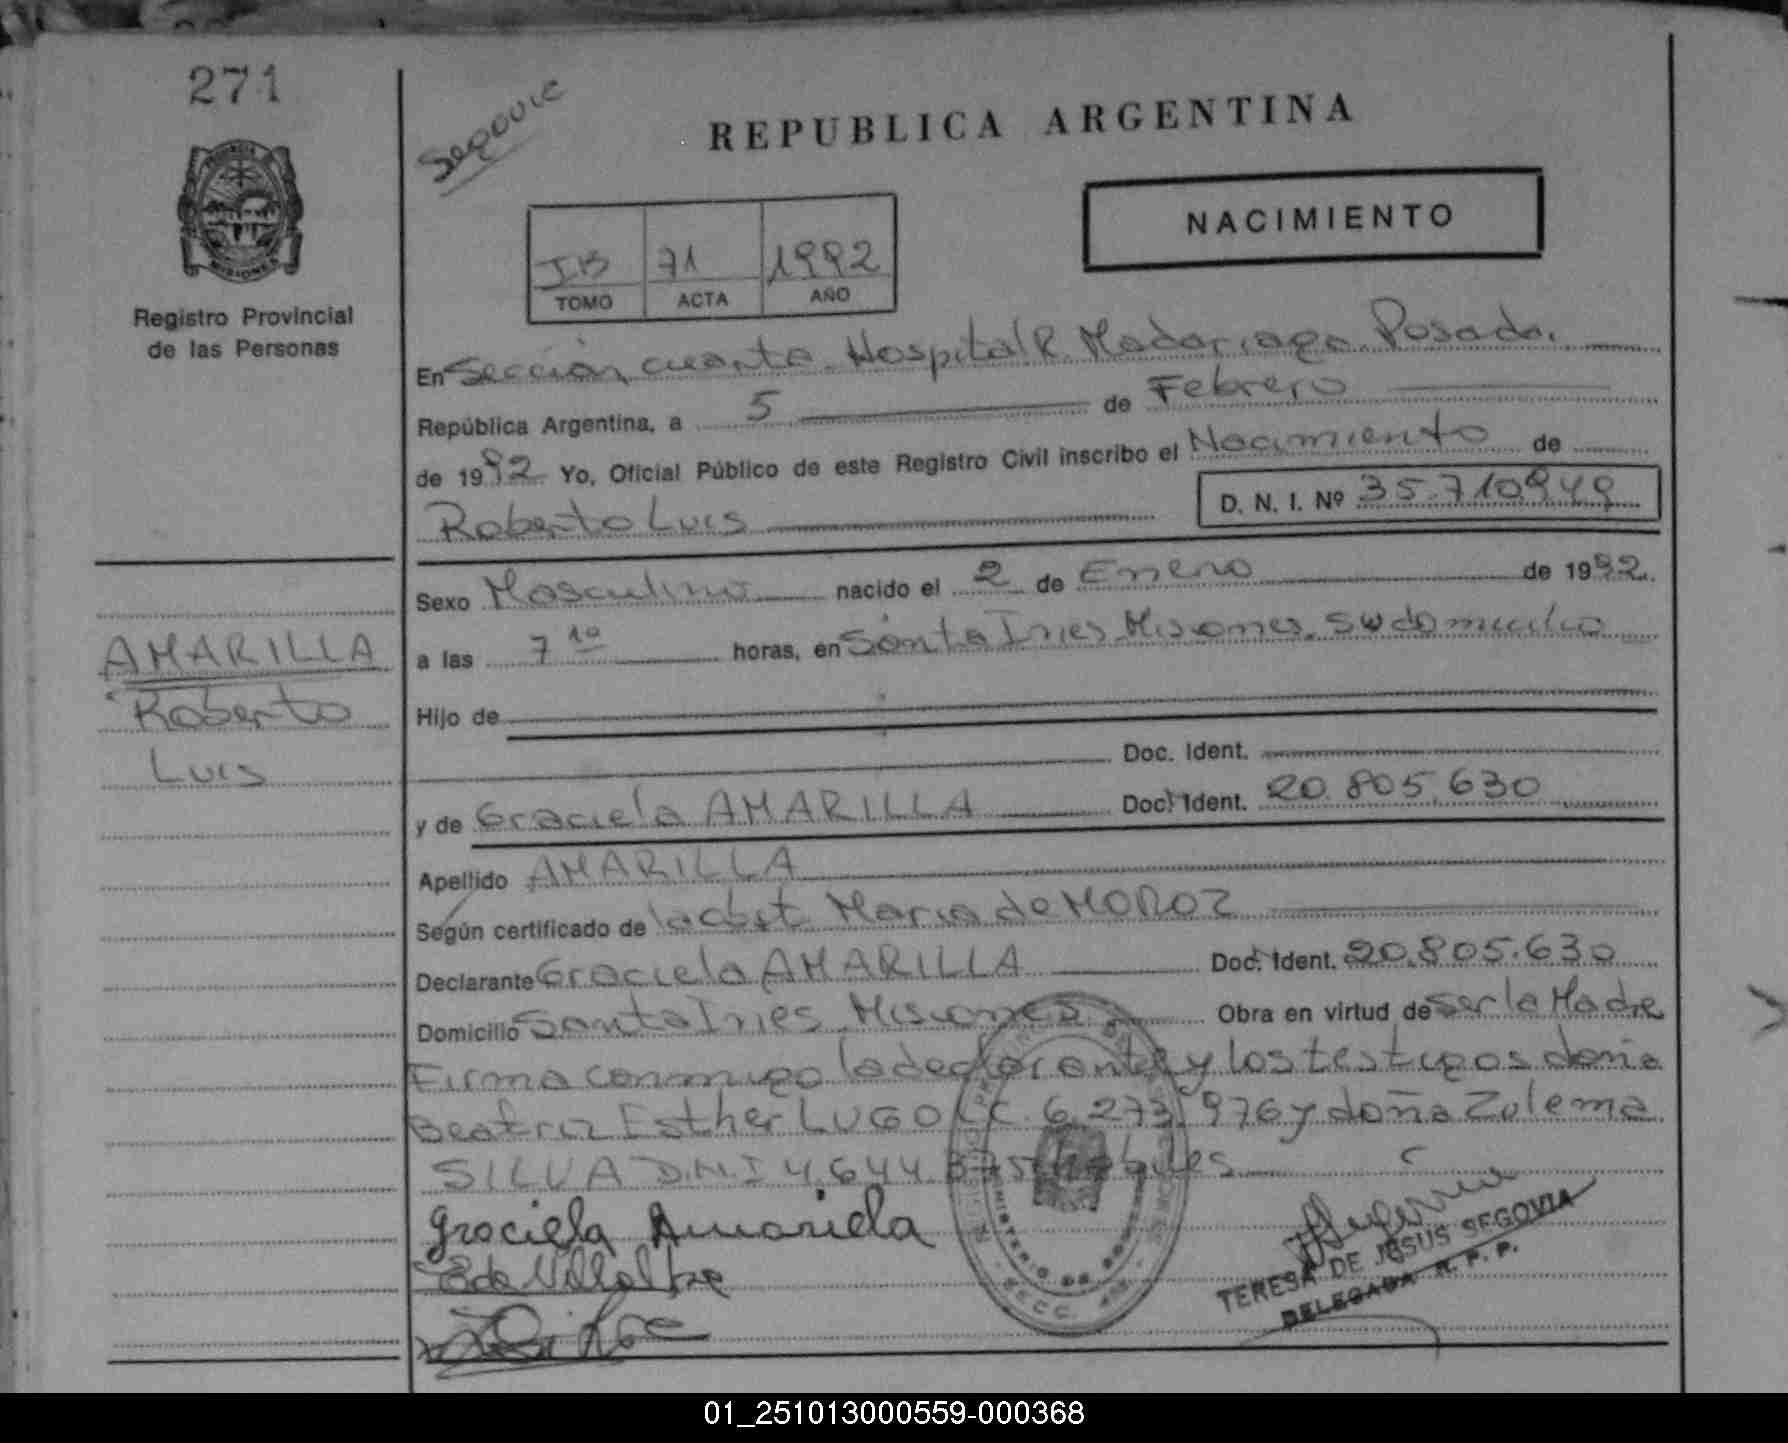 271
Segovia
REPUBLICA ARGENTINA
NACIMIENTO
PROVINCIA DE
MISIONES
Registro Provincial
de las Personas
IB 71 1992
TOMO ACTA AÑO
En Sección cuarta Hospital R. Madariaga Posadas
República Argentina, a 5 de Febrero
de 1992 Yo, Oficial Público de este Registro Civil inscribo el Nacimiento de
Roberto Luis D. N. I. Nº 35.710.949
Sexo Masculino nacido el 2 de Enero de 1992
a las 7 10 horas, en Santa Inés Misiones. su domicilio
AMARILLA
Roberto
Luis
Hijo de
Doc. Ident.
y de Graciela AMARILLA Doc. Ident. 20.805.630
Apellido AMARILLA
Según certificado de la obst Maria de MOROZ
Declarante Graciela AMARILLA Doc. Ident. 20.805.630
Domicilio Santa Inés Misiones Obra en virtud de ser la Madre
Firma conmigo la declarante y los testigos doña
Beatriz Esther LUGO LC 6.273.976 y doña Zulema
SILVA D.N.I 4.644. hábiles
Graciela Amariela
MINISTERIO DE
SECC. 4ta
TERESA DE JESUS SEGOVIA
DELEGADA R. P. P.
01_251013000559-000368